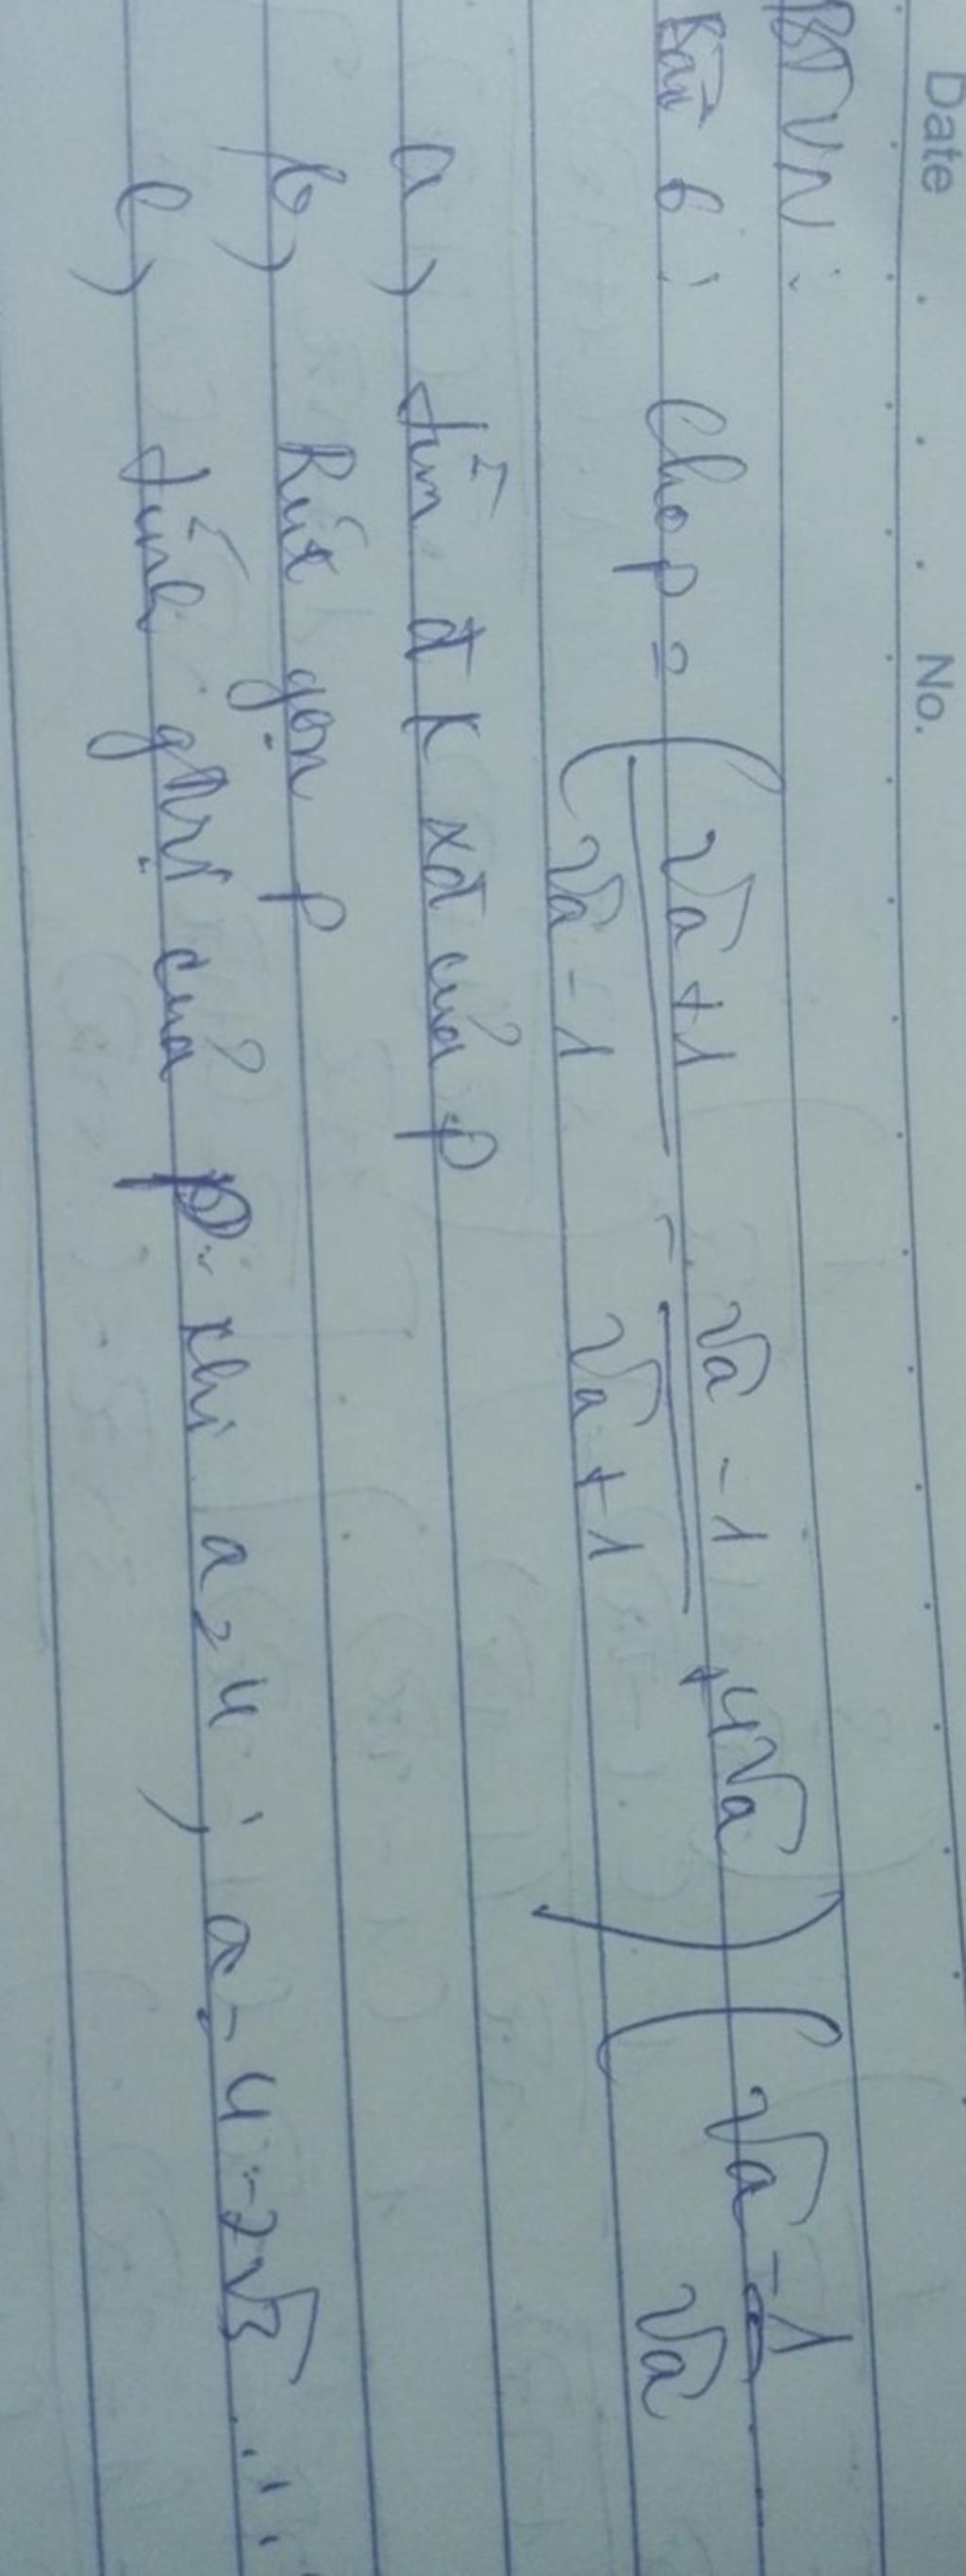 Date No.
BTVN:
Bài 6: Cho P = ( (√a + 1)/(√a - 1) - (√a - 1)/(√a + 1) + 4√a ) ( √a - 1/√a
a) Tìm đk xđ của P
b) Rút gọn P
c) Tính gtrị của P khi a = 4; a = 4 - 2√3